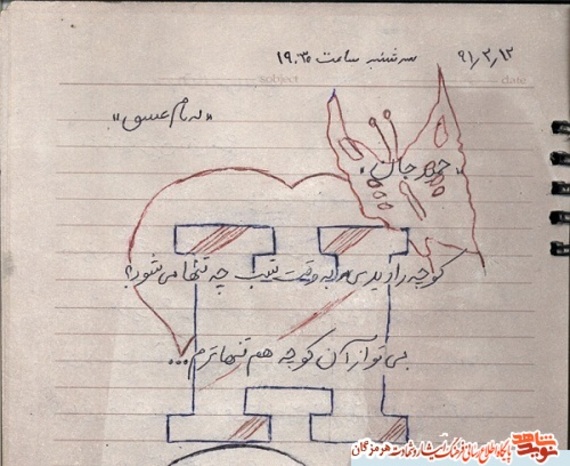 ۹۱/۲/۱۲ سه شنبه ساعت ۱۹:۳۰
subject date
"به نام عشق"
"حمید جان"
کوچه را دیدی به وقت شب چه تنها می شود؟
بی تو از آن کوچه هم تنهاترم...
نوید شاهد
پایگاه اطلاع رسانی فرهنگ ایثار و شهادت هرمزگان